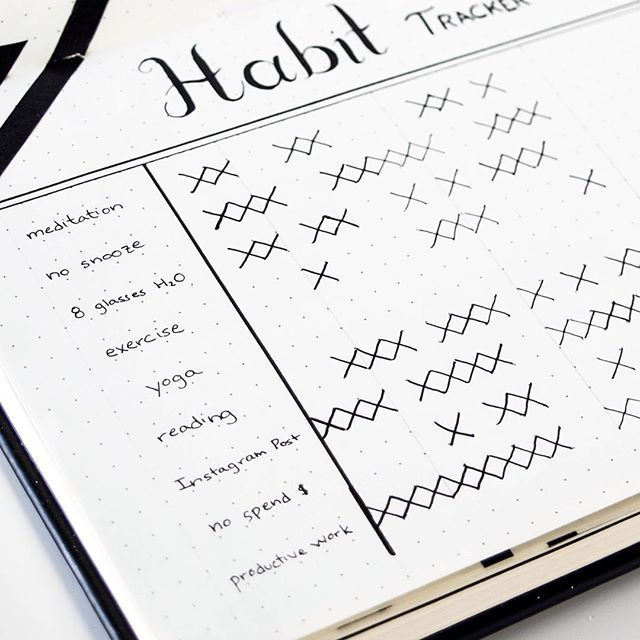 Habit TRACKER
meditation
no snooze
8 glasses H₂O
exercise
yoga
reading
Instagram Post
no spend $
productive work